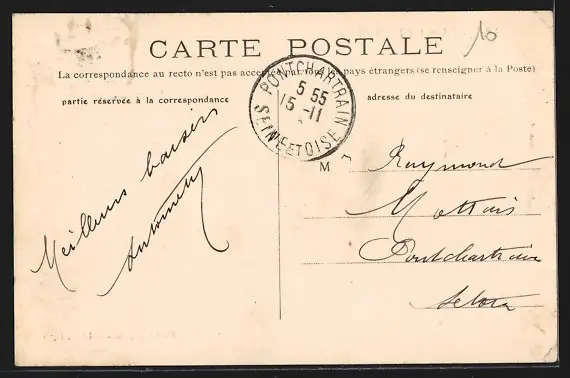 10
CARTE POSTALE
La correspondance au recto n'est pas acceptée par tous les pays étrangers (se renseigner à la Poste)
partie réservée à la correspondance
adresse du destinataire
PONTCHARTRAIN
5 55
15 -11
SEINE ET OISE
M
Raymond
Pontchartrain
Meilleurs baisers